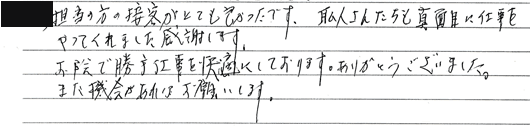 担当の方の接客がとても良かったです。職人さんたちも真面目に仕事を
やってくれました感謝します。
お陰で勝手仕事を快適にしております。ありがとうございました。
また機会があればお願いします。